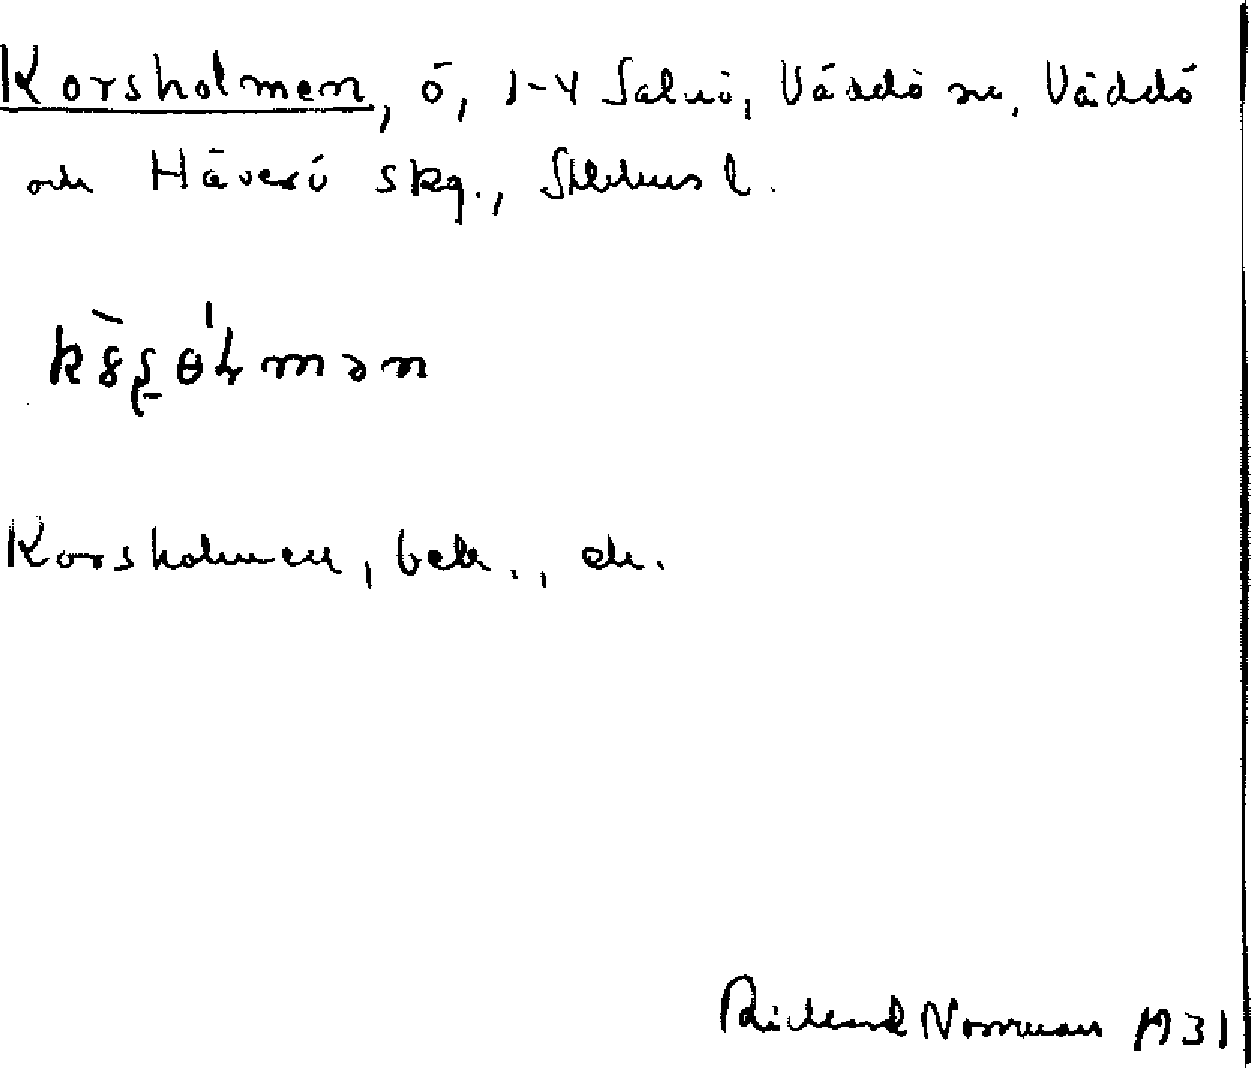 Korsholmen, ö, 1-4 Salnö, Väddö sn, Väddö
och Häverö skg., Sthlms l.
Korsholmen, bek., ek.
Rickard Norrman 1931